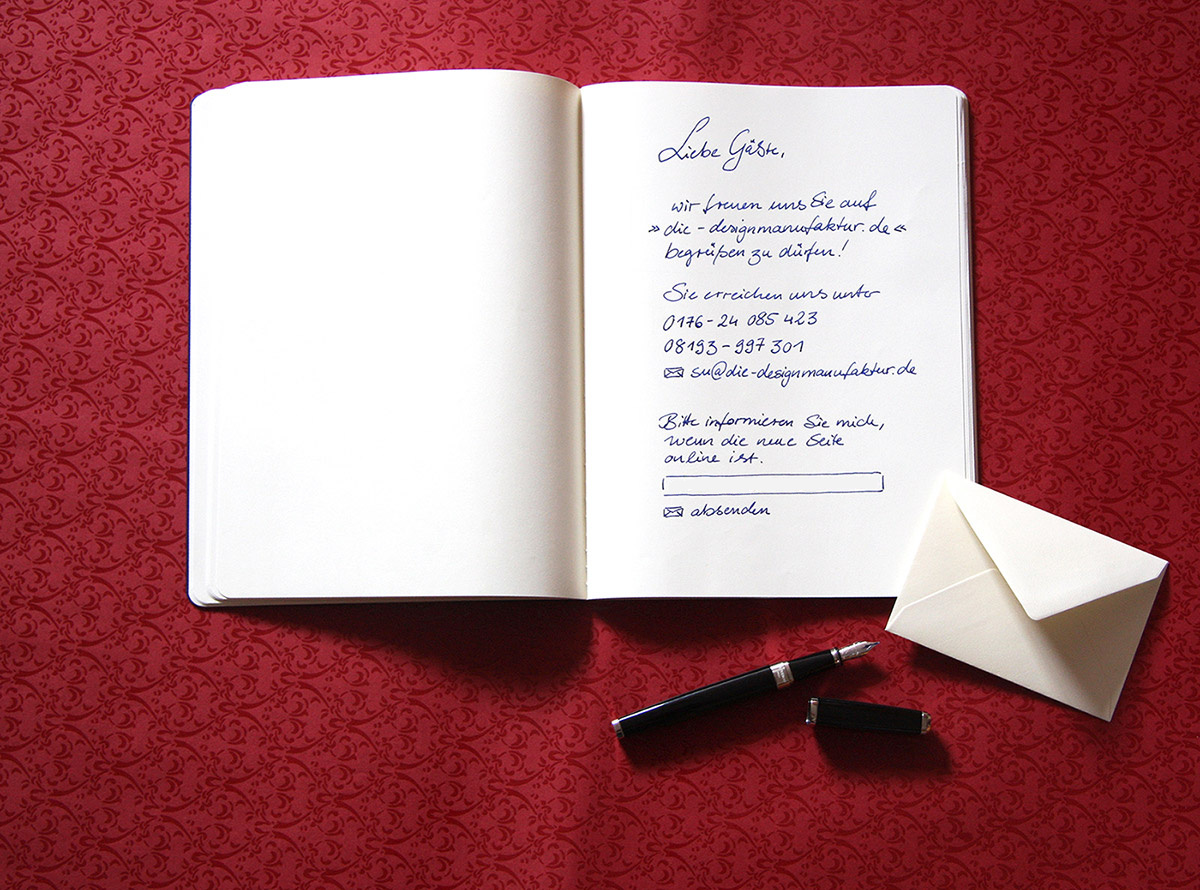 Liebe Gäste,
wir freuen uns Sie auf
»die-designmanufaktur.de«
begrüßen zu dürfen!
Sie erreichen uns unter
0176-24 085 423
08193-997 301
su@die-designmanufaktur.de
Bitte informieren Sie mich,
wenn die neue Seite
online ist.
absenden